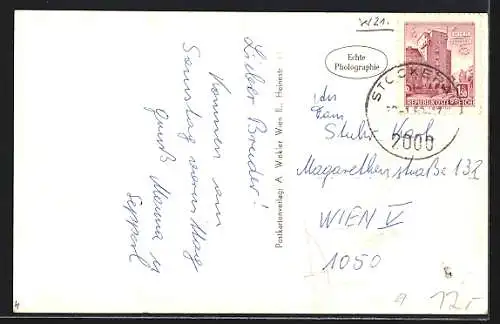 W21.
Echte
Photographie
STOCKERAU
2000
REPUBLIK ÖSTERREICH
Lieber Bruder!
Kommen am
Samstag vormittag
Gruß Mama u
Sepperl
Postkartenverlag: A Winkler Wien II., Heinestr
Fam
Karl
Margarethenstraße 132
WIEN V
1050
12.-